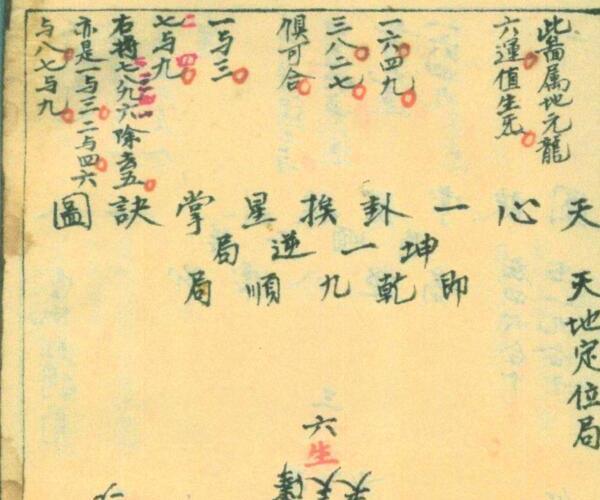 此畨属地元龍
六運值生旡
一六四九
三八二七
俱可合
一与三
二四
七与九
右将七八九六除去五
亦是一与三二与四六
与八七与九
天心一卦挨星掌訣圖
坤一逆局
即乾九順局
天地定位局
三
六
生